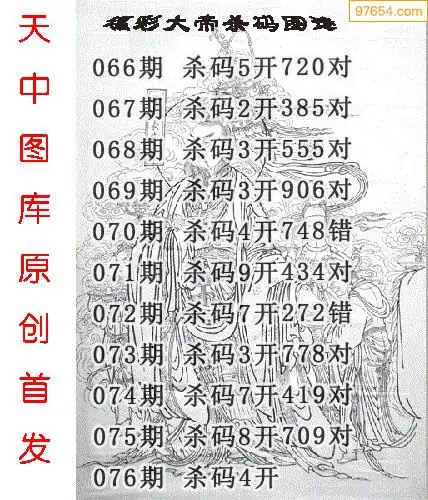 97654.com
福彩大帝杀码图①
066期 杀码5开720对
067期 杀码2开385对
068期 杀码3开555对
069期 杀码3开906对
070期 杀码4开748错
071期 杀码9开434对
072期 杀码7开272错
073期 杀码3开778对
074期 杀码7开419对
075期 杀码8开709对
076期 杀码4开
天中图库原创首发